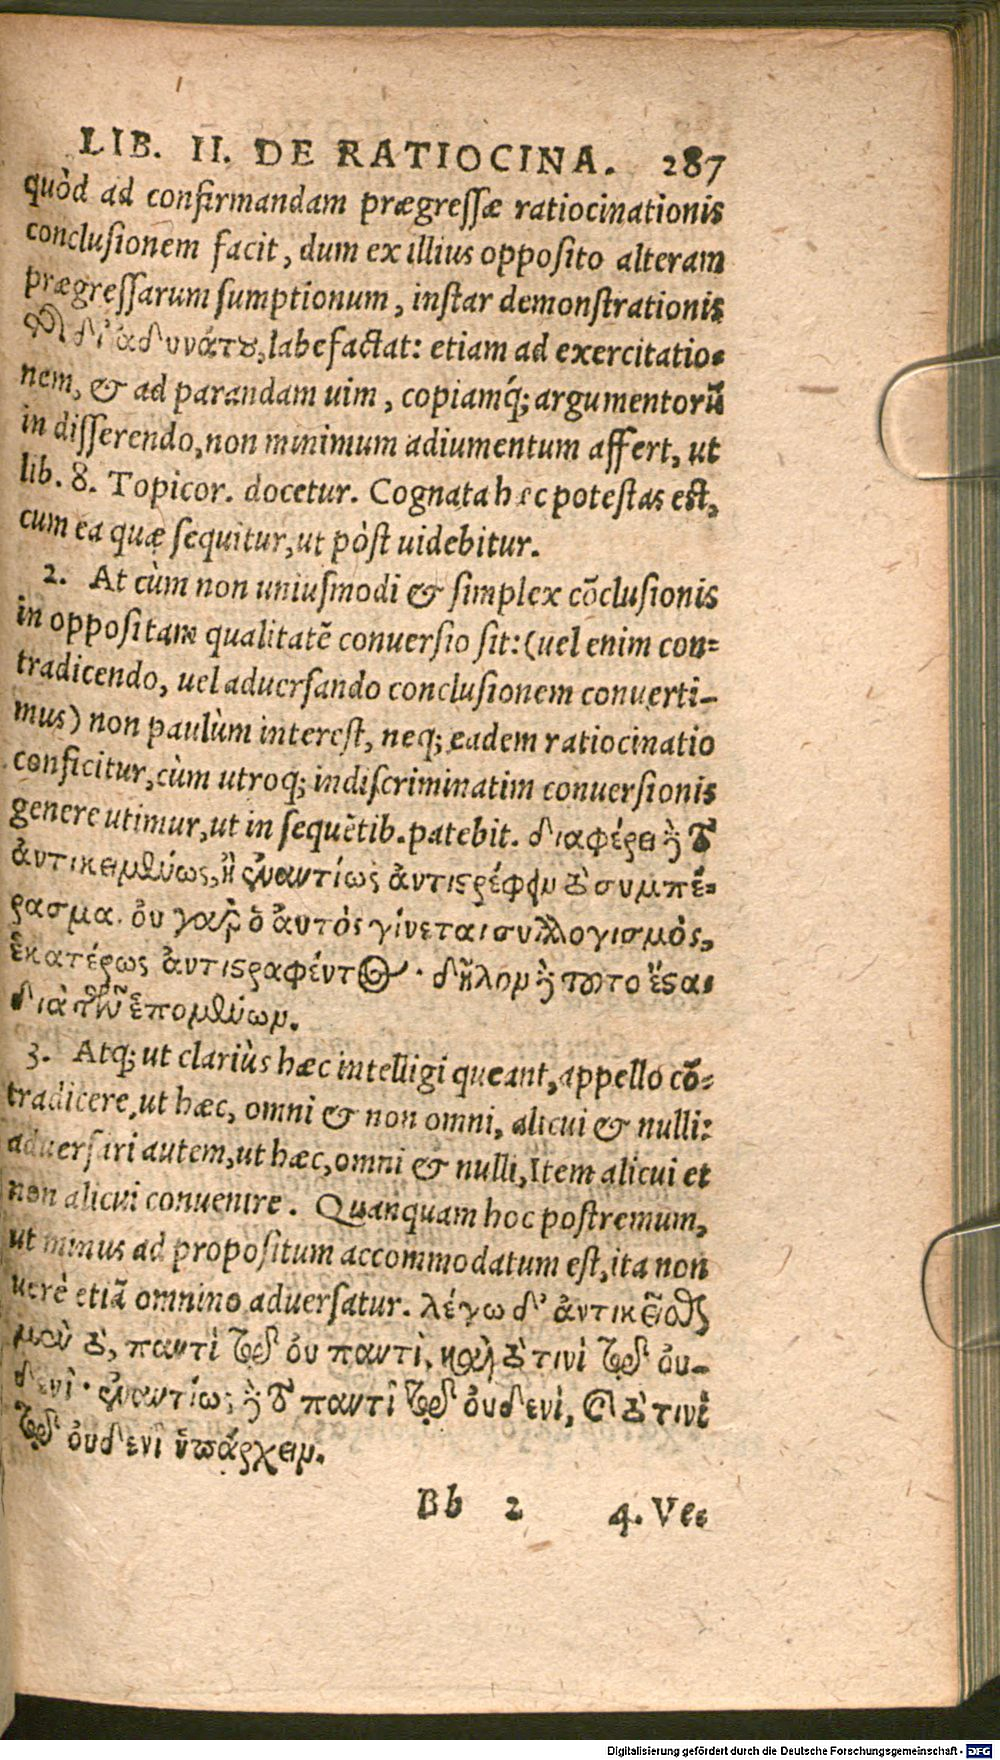 LIB. II. DE RATIOCINA. 287
quòd ad confirmandam prægressæ ratiocinationis
conclusionem facit, dum ex illius opposito alteram
prægressarum sumptionum, instar demonstrationis
δι' ἀδυνάτου, labefactat: etiam ad exercitatio-
nem, & ad parandam uim, copiamq́; argumentorũ
in disserendo, non minimum adiumentum affert, ut
lib. 8. Topicor. docetur. Cognata hæc potestas est,
cum ea quæ sequitur, ut pòst uidebitur.
2. At cùm non uniusmodi & simplex cõclusionis
in oppositam qualitatẽ conuersio sit: (uel enim con-
tradicendo, uel aduersando conclusionem conuerti-
mus) non paulùm interest, neq; eadem ratiocinatio
conficitur, cùm utroq; indiscriminatim conuersionis
genere utimur, ut in sequẽtib. patebit. διαφέρει δὲ τὸ
ἀντικειμένως, ἢ ἐναντίως ἀντιστρέφειν τὸ συμπέ-
ρασμα. οὐ γὰρ ὁ αὐτὸς γίνεται συλλογισμὸς,
ἑκατέρως ἀντιστραφέντος. δῆλον δὲ τοῦτο ἔσται
διὰ τῶν ἑπομένων.
3. Atq; ut clariùs hæc intelligi queant, appello cõ-
tradicere, ut hæc, omni & non omni, alicui & nulli:
aduersari autem, ut hæc, omni & nulli, Item alicui et
non alicui conuenire. Quanquam hoc postremum,
ut minus ad propositum accommodatum est, ita non
uerè etiã omnino aduersatur. λέγω δ' ἀντικεῖσθαι
μὲν τὸ, παντὶ τῷ οὐ παντὶ, καὶ τὸ τινὶ τῷ οὐ-
δενὶ. ἐναντίως δὲ τὸ παντὶ τῷ οὐδενὶ, καὶ τὸ τινὶ
τῷ οὐδενὶ ὑπάρχειν.
Bb 2 4. Ve-
Digitalisierung gefördert durch die Deutsche Forschungsgemeinschaft - DFG